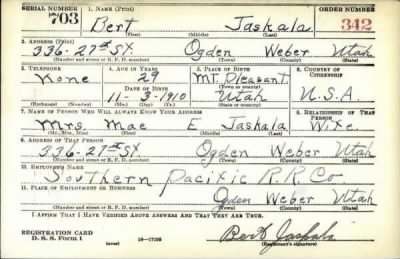 SERIAL NUMBER 1. NAME (Print) ORDER NUMBER
703 Bert Jaskala 342
(First) (Middle) (Last)
2. ADDRESS (Print)
336-27th St Ogden Weber Utah
(Number and street or R. F. D. number) (Town) (County) (State)
3. TELEPHONE 4. AGE IN YEARS 5. PLACE OF BIRTH 6. COUNTRY OF CITIZENSHIP
None 29 Mt. Pleasant
DATE OF BIRTH (Town or county)
11-3-1910 Utah U.S.A
(Exchange) (Number) (Mo.) (Day) (Yr.) (State or country)
7. NAME OF PERSON WHO WILL ALWAYS KNOW YOUR ADDRESS 8. RELATIONSHIP OF THAT PERSON
Mrs Mae E Jaskala Wife
(Mr., Mrs., Miss) (First) (Middle) (Last)
9. ADDRESS OF THAT PERSON
336-27th St Ogden Weber Utah
(Number and street or R. F. D. number) (Town) (County) (State)
10. EMPLOYER'S NAME
Southern Pacific R.R Co
11. PLACE OF EMPLOYMENT OR BUSINESS
Ogden Weber Utah
(Number and street or R. F. D. number) (Town) (County) (State)
I AFFIRM THAT I HAVE VERIFIED ABOVE ANSWERS AND THAT THEY ARE TRUE.
REGISTRATION CARD
D. S. S. Form 1 (over) 16-17105 Bert Jaskala
(Registrant's signature)